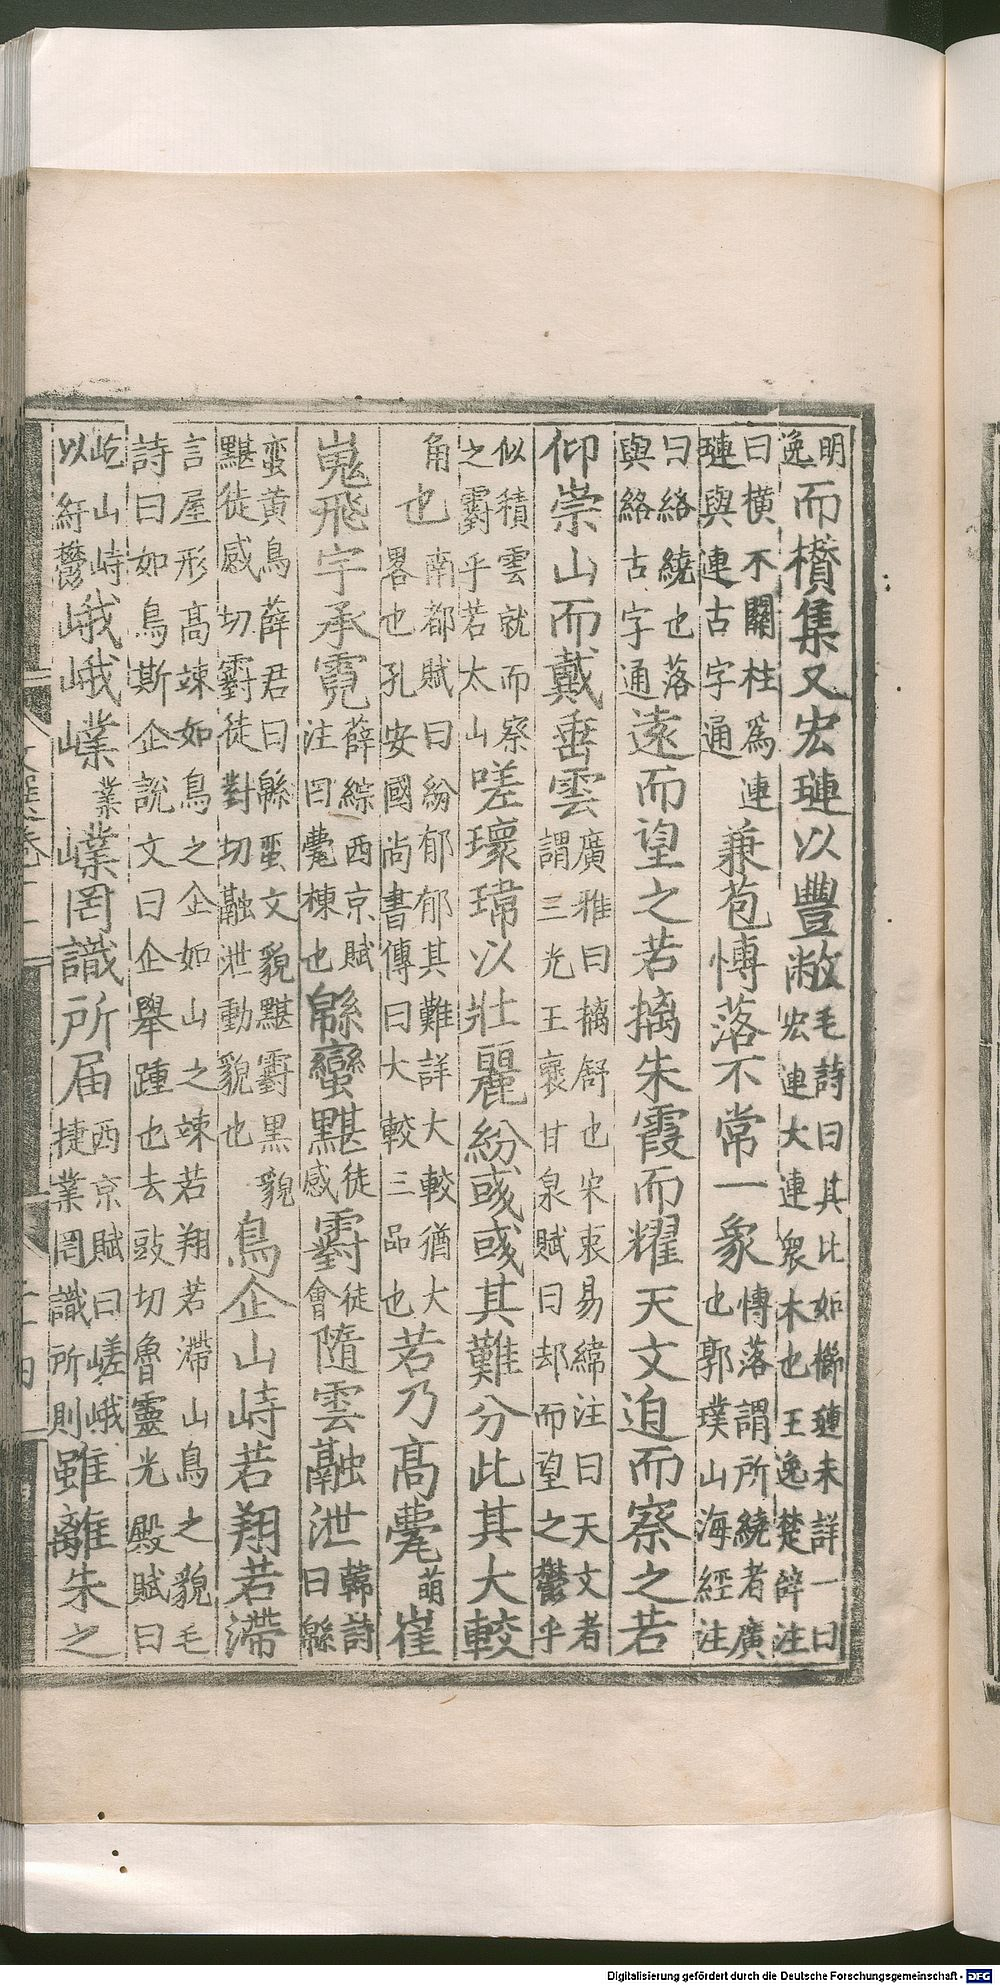 明
逸
而櫕集又宏璉以豐敞
毛詩曰其比如櫛璉未詳一曰
宏連大連衆木也王逸楚辭注
曰橫不關柱爲連
璉與連古字通
兼苞愽落不常一象
愽落謂所繞者廣
也郭璞山海經注
曰絡繞也落
與絡古字通
遠而望之若摛朱霞而耀天文迫而察之若
仰崇山而戴垂雲
廣雅曰摛舒也宋衷易緯注曰天文者
謂三光王襃甘泉賦曰却而望之鬱乎
似積雲就而察
之䨴乎若太山
嗟瓌瑋以壯麗紛彧彧其難分此其大較
角
也
南都賦曰紛郁郁其難詳大較猶大
畧也孔安國尚書傳曰大較三品也
若乃高甍萌崔
嵬飛宇承霓
薛綜西京賦
注曰甍棟也
緜蠻黮徒感䨴徒會隨雲融泄
韓詩
曰緜
蛮黃鳥薛君曰緜蛮文貌黮䨴黑貌
黮徒感切䨴徒對切融泄動貌也
鳥企山峙若翔若滯
言屋形高竦如鳥之企如山之竦若翔若滯山鳥之貌毛
詩曰如鳥斯企說文曰企舉踵也去豉切魯靈光殿賦曰
屹山峙
以紆鬱
峨峨嶫業嶫罔識所届
西京賦曰嵯峨
捷業罔識所則
雖離朱之
Digitalisierung gefördert durch die Deutsche Forschungsgemeinschaft - DFG